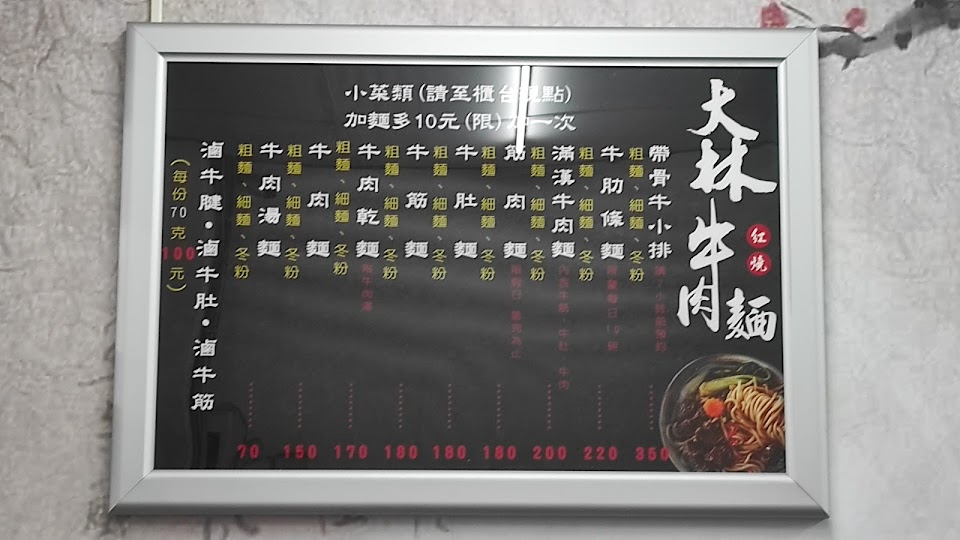 大林牛肉麵
紅燒
小菜類(請至櫃台現點)
加麵多10元(限)加一次
帶骨牛小排
請 小時前預約
350
粗麵、細麵、冬粉
牛肋條麵
限量每日10碗
220
粗麵、細麵、冬粉
滿漢牛肉麵
內含牛筋、牛肚、牛肉
200
粗麵、細麵、冬粉
筋肉麵
限假日,賣完為止
180
粗麵、細麵、冬粉
牛肚麵
180
粗麵、細麵、冬粉
牛筋麵
180
粗麵、細麵、冬粉
牛肉乾麵
附牛肉湯
170
粗麵、細麵、冬粉
牛肉麵
150
粗麵、細麵、冬粉
牛肉湯麵
70
粗麵、細麵、冬粉
滷牛腱・滷牛肚・滷牛筋
(每份70克100元)